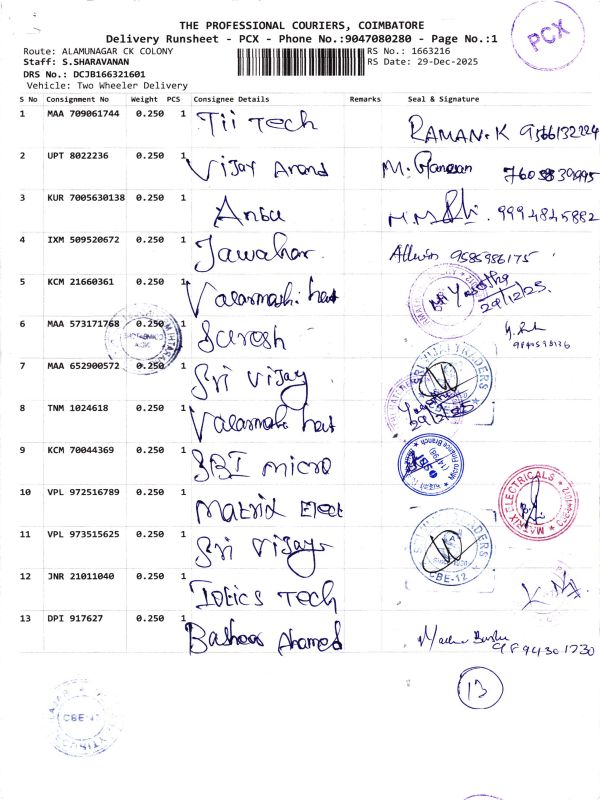 THE PROFESSIONAL COURIERS, COIMBATORE
Delivery Runsheet - PCX - Phone No.:9047080280 - Page No.:1
PCX
Route: ALAMUNAGAR CK COLONY
RS No.: 1663216
Staff: S.SHARAVANAN
RS Date: 29-Dec-2025
DRS No.: DCJB166321601
Vehicle: Two Wheeler Delivery
S No Consignment No Weight PCS Consignee Details Remarks Seal & Signature
1 MAA 709061744 0.250 1 Tii Tech RAMAN.K 9566132224
2 UPT 8022236 0.250 1 Vijay Anand M.
3 KUR 7005630138 0.250 1 Anbu 9994845882
4 IXM 509520672 0.250 1 Jawahar Allwin 9585986175
5 KCM 21660361 0.250 1 Valarmathi hat 29/12/25
6 MAA 573171768 0.250 1 Suresh
7 MAA 652900572 0.250 1 Sri Vijay SRI VIJAY TRADERS
8 TNM 1024618 0.250 1 Valarmathi hat 29/12/25
9 KCM 70044369 0.250 1 SBI micro Micro Finance Branch
10 VPL 972516789 0.250 1 Matrix Elect MATRIX ELECTRICALS
11 VPL 973515625 0.250 1 Sri Vijay SRI VIJAY TRADERS CBE-12
12 JNR 21011040 0.250 1 Iotics Tech
13 DPI 917627 0.250 1 Basheer Ahamed 9894301730
13